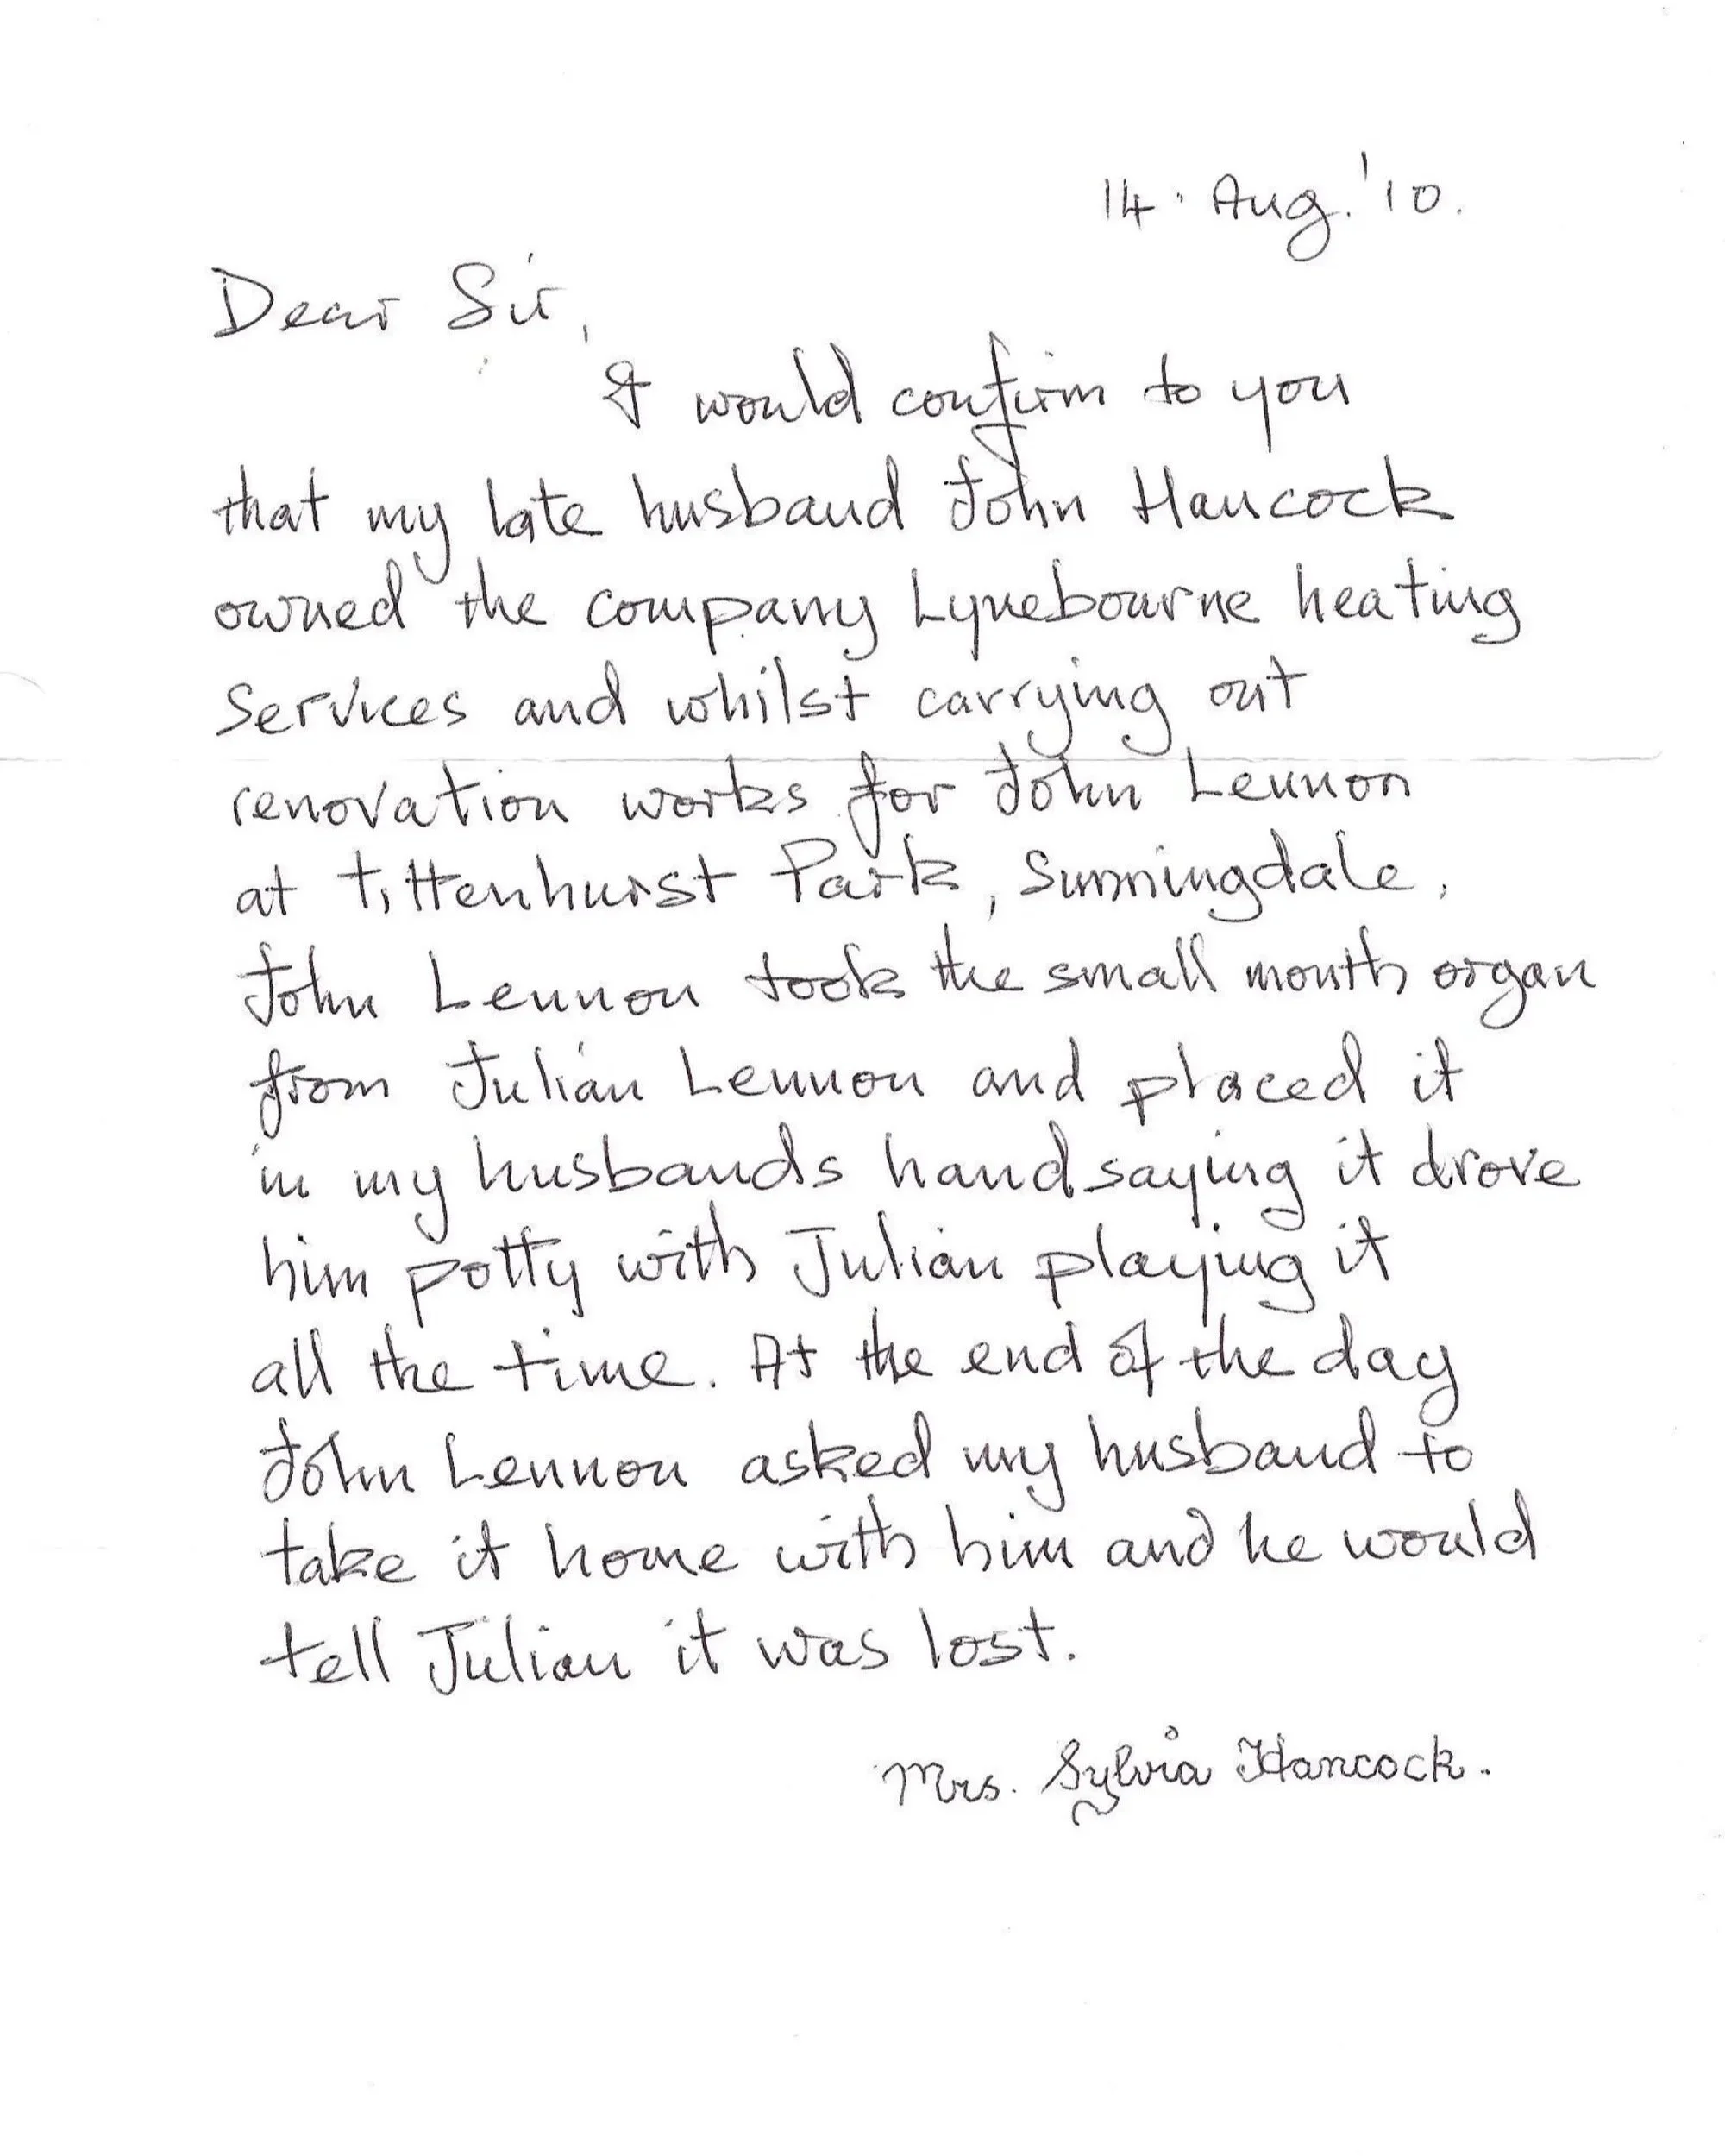 14. Aug. '10.
Dear Sir,
I would confirm to you
that my late husband John Hancock
owned the company Lynebourne heating
Services and whilst carrying out
renovation works for John Lennon
at Tittenhurst Park, Sunningdale,
John Lennon took the small mouth organ
from Julian Lennon and placed it
in my husbands hand saying it drove
him potty with Julian playing it
all the time. At the end of the day
John Lennon asked my husband to
take it home with him and he would
tell Julian it was lost.
Mrs. Sylvia Hancock.